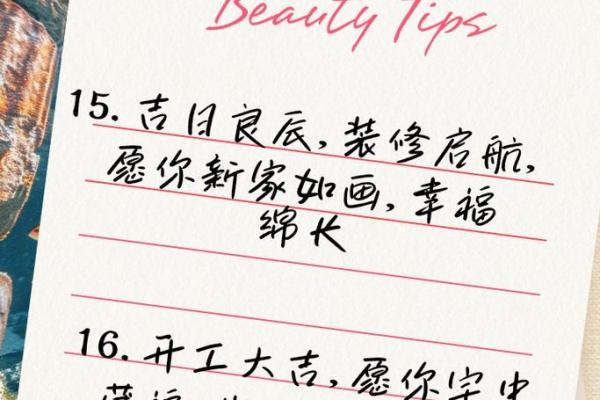 Beauty Tips
15. 吉日良辰, 装修启航,
愿你新家如画, 幸福
绵长
16. 开工大吉, 愿你宅中